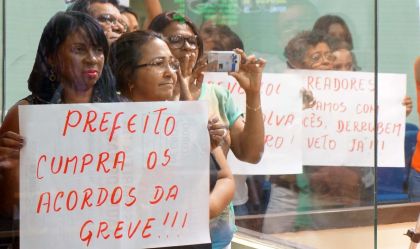 PREFEITO
CUMPRA OS
ACORDOS DA
GREVE!!!
READORES
AMOS COM
CÊS, DERRUBEM
VETO JÁ!!!